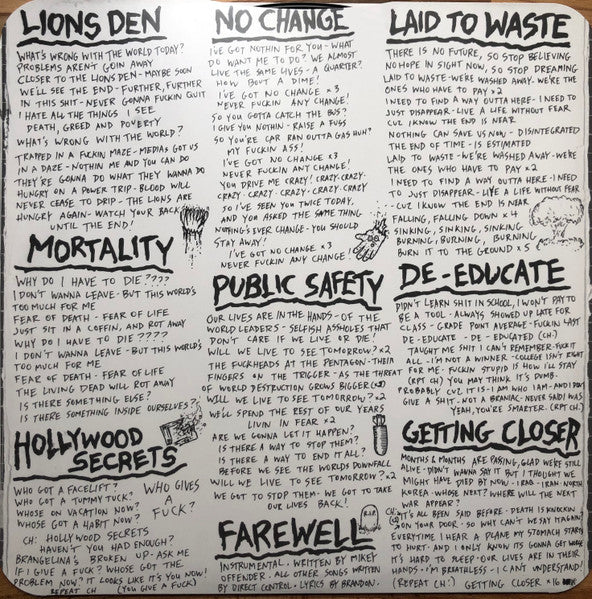 LIONS DEN
WHAT'S WRONG WITH THE WORLD TODAY?
PROBLEMS AREN'T GOIN AWAY
CLOSER TO THE LIONS DEN - MAYBE SOON
WE'LL SEE THE END - FURTHER, FURTHER
IN THIS SHIT - NEVER GONNA FUCKIN QUIT
I HATE ALL THE THINGS I SEE
DEATH, GREED AND POVERTY
WHAT'S WRONG WITH THE WORLD?
TRAPPED IN A FUCKIN MAZE - MEDIAS GOT US
IN A DAZE - NOTHIN ME AND YOU CAN DO
THEY'RE GONNA DO WHAT THEY WANNA DO
HUNGRY ON A POWER TRIP - BLOOD WILL
NEVER CEASE TO DRIP - THE LIONS ARE
HUNGRY AGAIN - WATCH YOUR BACK
UNTIL THE END!
MORTALITY
WHY DO I HAVE TO DIE????
I DON'T WANNA LEAVE - BUT THIS WORLD'S
TOO MUCH FOR ME
FEAR OF DEATH - FEAR OF LIFE
JUST SIT IN A COFFIN, AND ROT AWAY
WHY DO I HAVE TO DIE????
I DON'T WANNA LEAVE - BUT THIS WORLD'S
TOO MUCH FOR ME
FEAR OF DEATH - FEAR OF LIFE
THE LIVING DEAD WILL ROT AWAY
IS THERE SOMETHING ELSE?
IS THERE SOMETHING INSIDE OURSELVES?
HOLLYWOOD
SECRETS
WHO GOT A FACELIFT?
WHO GOT A TUMMY TUCK?
WHOSE ON VACATION NOW?
WHOSE GOT A HABIT NOW?
WHO GIVES
A
FUCK?
CH: HOLLYWOOD SECRETS
HAVEN'T YOU HAD ENOUGH?
BRANGELINA'S BROKEN UP - ASK ME
IF I GIVE A FUCK? WHOSE GOT THE
PROBLEM NOW? IT LOOKS LIKE IT'S YOU NOW!
REPEAT CH (YOU GIVE A FUCK)
NO CHANGE
I'VE GOT NOTHIN FOR YOU - WHAT
DO WANT ME TO DO? WE ALMOST
LIVE THE SAME LIVES - A QUARTER?
HOW BOUT A DIME!
I'VE GOT NO CHANGE x3
NEVER FUCKIN ANY CHANGE!
SO YOU GOTTA CATCH THE BUS?
I GIVE YOU NOTHIN - RAISE A FUSS
SO YOU'RE CAR RAN OUTTA GAS HUH?
MY FUCKIN ASS!
I'VE GOT NO CHANGE x3
NEVER FUCKIN ANY CHANGE!
YOU DRIVE ME CRAZY! CRAZY - CRAZY
CRAZY - CRAZY - CRAZY - CRAZY - CRAZY
SO I'VE SEEN YOU TWICE TODAY.
AND YOU ASKED THE SAME THING
NOTHING'S EVER CHANGE - YOU SHOULD
STAY AWAY!
I'VE GOT NO CHANGE x3
NEVER FUCKIN ANY CHANGE!
PUBLIC SAFETY
OUR LIVES ARE IN THE HANDS - OF THE
WORLD LEADERS - SELFISH ASSHOLES THAT
DON'T CARE IF WE LIVE OR DIE!
WILL WE LIVE TO SEE TOMORROW? x2
THE FUCKHEADS AT THE PENTAGON - THEIR
FINGERS ON THE TRIGGER - AS THE THREAT
OF WORLD DESTRUCTION GROWS BIGGER
WILL WE LIVE TO SEE TOMORROW? x2
WE'LL SPEND THE REST OF OUR YEARS
LIVIN IN FEAR x2
ARE WE GONNA LET IT HAPPEN?
IS THERE A WAY TO STOP THEM?
IS THERE A WAY TO END IT ALL?
BEFORE WE SEE THE WORLDS DOWNFALL
WILL WE LIVE TO SEE TOMORROW? x2
WE GOT TO STOP THEM - WE GOT TO TAKE
OUR LIVES BACK!
FAREWELL
RIP
INSTRUMENTAL - WRITTEN BY MIKEY
OFFENDER. ALL OTHER SONGS WRITTEN
BY DIRECT CONTROL. LYRICS BY BRANDON.
LAID TO WASTE
THERE IS NO FUTURE, SO STOP BELIEVING
NO HOPE IN SIGHT NOW, SO STOP DREAMING
LAID TO WASTE - WE'RE WASHED AWAY - WE'RE THE
ONES WHO HAVE TO PAY x2
I NEED TO FIND A WAY OUTTA HERE - I NEED TO
JUST DISAPPEAR - LIVE A LIFE WITHOUT FEAR
CUZ I KNOW THE END IS NEAR
NOTHING CAN SAVE US NOW - DISINTEGRATED
THE END OF TIME - IS ESTIMATED
LAID TO WASTE - WE'RE WASHED AWAY - WE'RE
THE ONES WHO HAVE TO PAY x2
I NEED TO FIND A WAY OUTTA HERE - I NEED
TO JUST DISAPPEAR - LIVE A LIFE WITHOUT FEAR
- CUZ I KNOW THE END IS NEAR
FALLING, FALLING DOWN x4
SINKING, SINKING, SINKING
BURNING, BURNING, BURNING
BURN IT TO THE GROUND x5
DE-EDUCATE
DIDN'T LEARN SHIT IN SCHOOL, I WON'T PAY TO
BE A TOOL - ALWAYS SHOWED UP LATE FOR
CLASS - GRADE POINT AVERAGE - FUCKIN LAST
DE-EDUCATE - DE-EDUCATED (CH)
TAUGHT ME SHIT I CAN'T REMEMBER - FUCK IT
ALL I'M NOT A WINNER - COLLEGE ISN'T RIGHT
FOR ME - FUCKIN STUPID IS HOW I'LL STAY
(RPT CH) YOU MAY THINK IT'S DUMB -
PROBABLY CUZ IT IS - I AM WHO I AM - AND I DON'T
GIVE A SHIT - NOT A BRANIAC - NEVER SAID I WAS
YEAH, YOU'RE SMARTER. (RPT CH.)
GETTING CLOSER
MONTHS & MONTHS ARE PASING, GLAD WE'RE STILL
ALIVE - DIDN'T WANNA SAY IT BUT I THOUGHT WE
MIGHT HAVE DIED BY NOW - IRAQ - IRAN - NORTH
KOREA - WHOSE NEXT? WHERE WILL THE NEXT
WAR APPEAR?
CH: IT'S ALL BEEN SAID BEFORE - DEATH IS KNOCKIN
ON YOUR DOOR - SO WHY CAN'T WE SAY IT AGAIN?
EVERYTIME I HEAR A PLANE MY STOMACH STARTS
TO HURT - AND I ONLY KNOW ITS GONNA GET WORSE
IT'S HARD TO SLEEP - OUR LIVES ARE IN THEIR
HANDS - I'M BREATHLESS - I CAN'T UNDERSTAND!
(REPEAT CH:) GETTING CLOSER x16